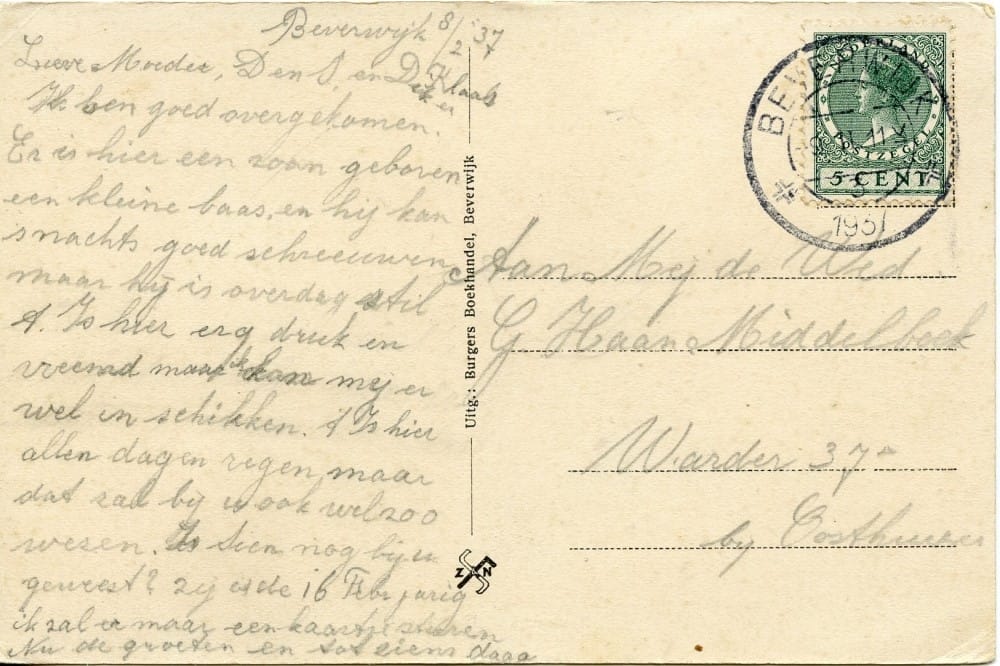 Beverwijk 8/2 '37
Lieve Moeder, D en S, en D Klaas
Dieuwer
Ik ben goed overgekomen.
Er is hier een zoon geboren
een kleine baas, en hij kan
snachts goed schreeuwen
maar hij is overdag stil
A. Is hier erg druk en
vreemd maar ik kan mij er
wel in schikken. A Is hier
allen dagen regen, maar
dat zal bij u ook wel zoo
wesen. Is Sien nog bij u
geweest? zij is de 16 Febr jarig
ik zal er maar een kaartje sturen
Nu de groeten en tot ziens daag
Uitg.: Burgers Boekhandel, Beverwijk
Z N
NEDERLAND
POSTZEGEL
5 CENT
BEVERWIJK
1937
Aan Mej de Wed
G. Haan Middelbeek
Warder 37
bij Oosthuizen